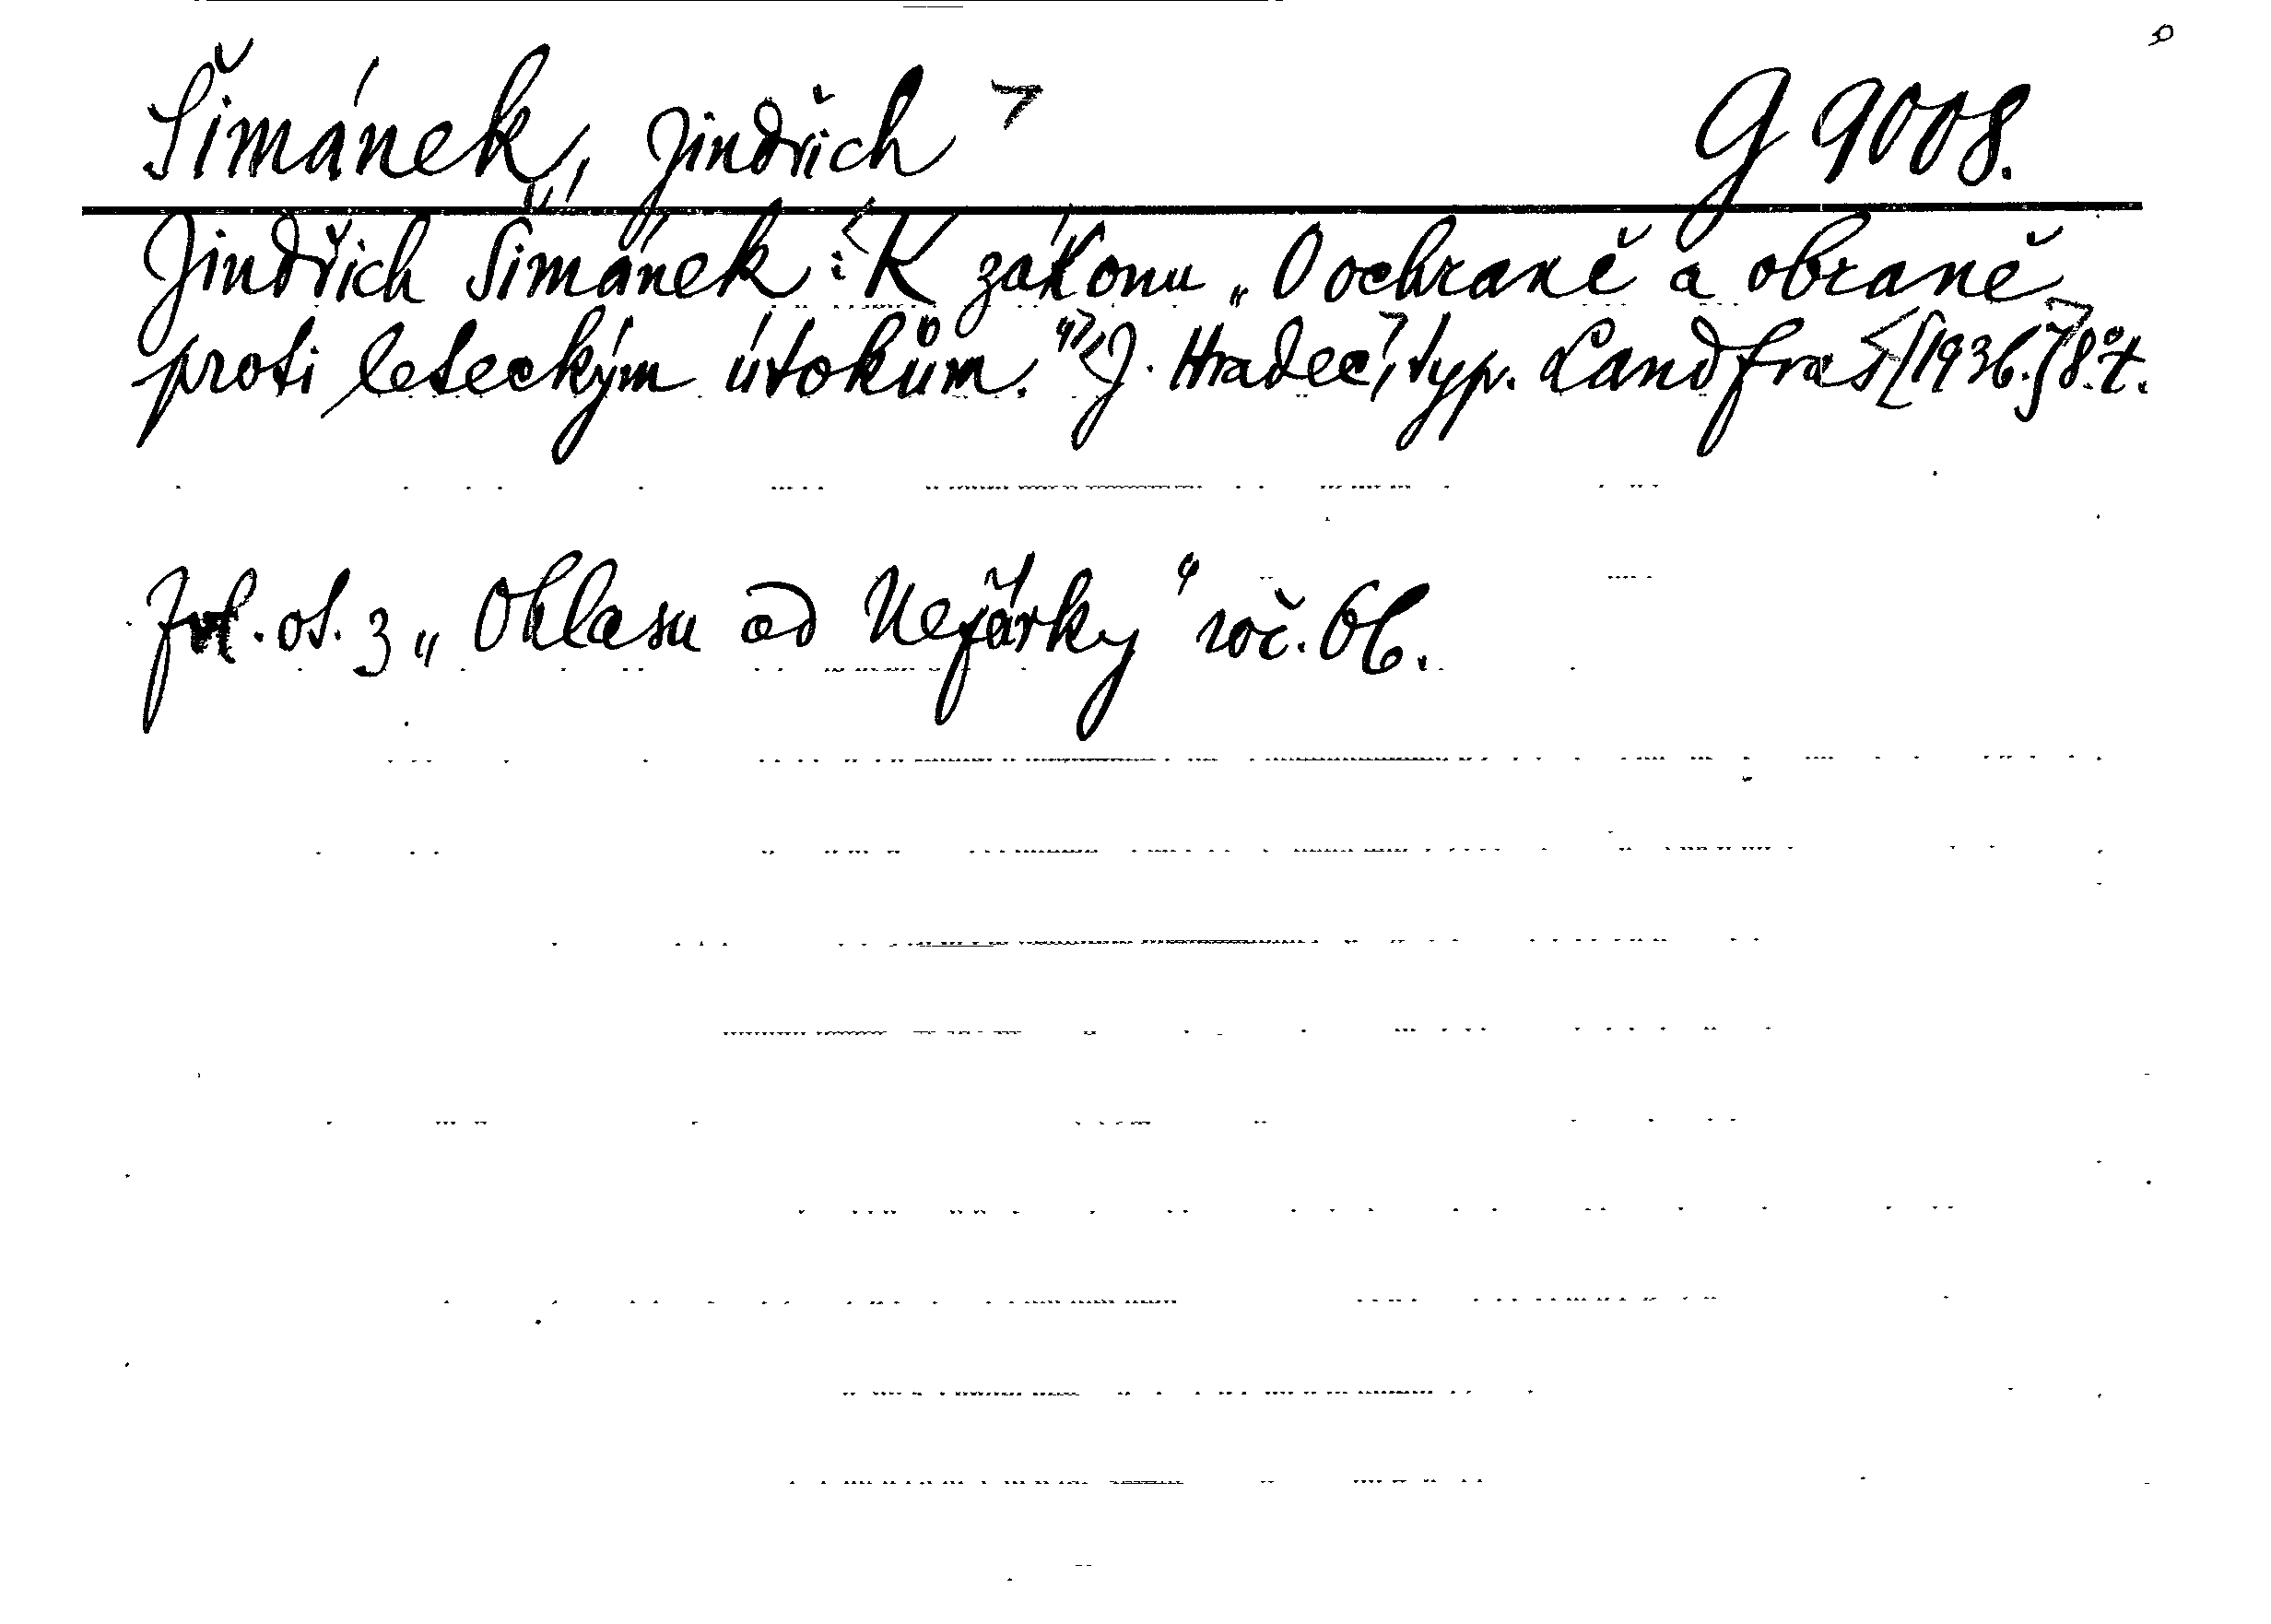 Šimánek, Jindřich G 9008.
Jindřich Šimánek: K zákonu „O ochraně a obraně
proti leteckým útokům.“ J. Hradec, typ. Landfras [1936.] 8° t.
Zvl. ot. z „Ohlasu od Nežárky“ roč. 66.